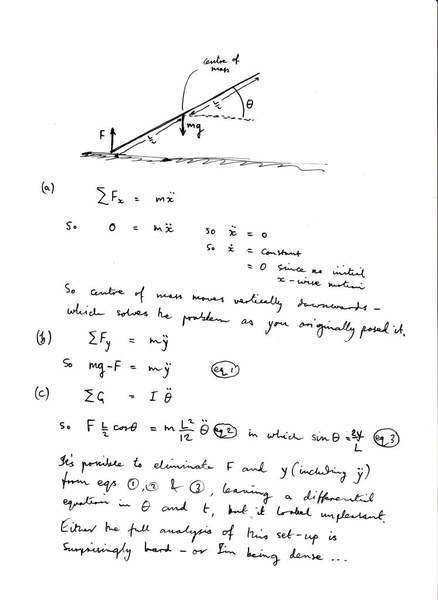 centre of
mass
F
L/2
L/2
θ
mg
(a) ∑Fx = mẍ
So 0 = mẍ so ẍ = 0
so ẋ = constant
= 0 since no initial
x-wise motion
So centre of mass moves vertically downwards –
which solves the problem as you originally posed it.
(b) ∑Fy = mÿ
So mg-F = mÿ eq 1
(c) ∑G = I θ̈
so F L/2 cosθ = m L²/12 θ̈ eq 2 in which sin θ = 2y/L eq 3
It's possible to eliminate F and y (including ÿ)
from eqs ①, ② & ③, leaving a differential
equation in θ and t, but it looked unpleasant.
Either the full analysis of this set-up is
surprisingly hard – or I'm being dense ...